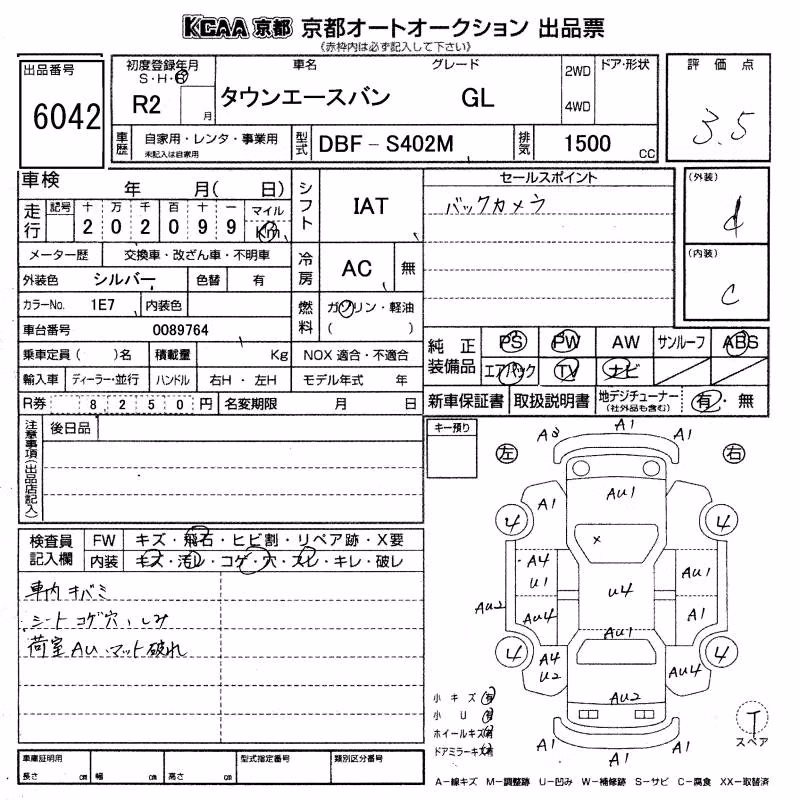 KCAA 京都 京都オートオークション 出品票
《赤枠内は必ず記入して下さい》
出品番号
6042
初度登録年月
S・H・R
R2 月
車名 グレード
タウンエースバン GL
2WD
4WD
ドア・形状
評価点
3.5
車歴
自家用・レンタ・事業用
未記入は自家用
型式 DBF－S402M
排気 1500 CC
車検 年 月( 日)
走行 記号 十 万 千 百 十 一 マイル
2 0 2 0 9 9 Km
メーター歴 交換車・改ざん車・不明車
外装色 シルバー 色替 有
カラーNo. 1E7 内装色
車台番号 0089764
乗車定員( )名 積載量 Kg
輸入車 ディーラー・並行 ハンドル 右H・左H
R券 8,250円 名変期限 月 日
シフト IAT
冷房 AC 無
燃料 ガソリン・軽油
( )
NOX 適合・不適合
モデル年式 年
セールスポイント
バックカメラ
(外装)
d
(内装)
C
純正装備品 PS PW AW サンルーフ ABS
エアバック TV ナビ
新車保証書 取扱説明書 地デジチューナー 有・無
(社外品も含む)
注意事項(出品店記入)
後日品
検査員記入欄
FW キズ・飛石・ヒビ割・リペア跡・X要
内装 キズ・汚レ・コゲ・穴・スレ・キレ・破レ
車内キバミ
シートコゲ穴、しみ
荷室AU、マット破れ
車庫証明用
長さ cm 幅 cm 高さ cm
型式指定番号 類別区分番号
キー預り
左 右
A3 A1 A1
A1 AU1 A1
4 4
×
A4 U1
AU1
U4
AU2 AU4 A1
AU1
4 4
A4 U2
AU4
AU2
A1 A1 A1
小キズ 有
小U 有
ホイールキズ 有
ドアミラーキズ 有
T
スペア
A－線キズ M－調整跡 U－凹み W－補修跡 S－サビ C－腐食 XX－取替済